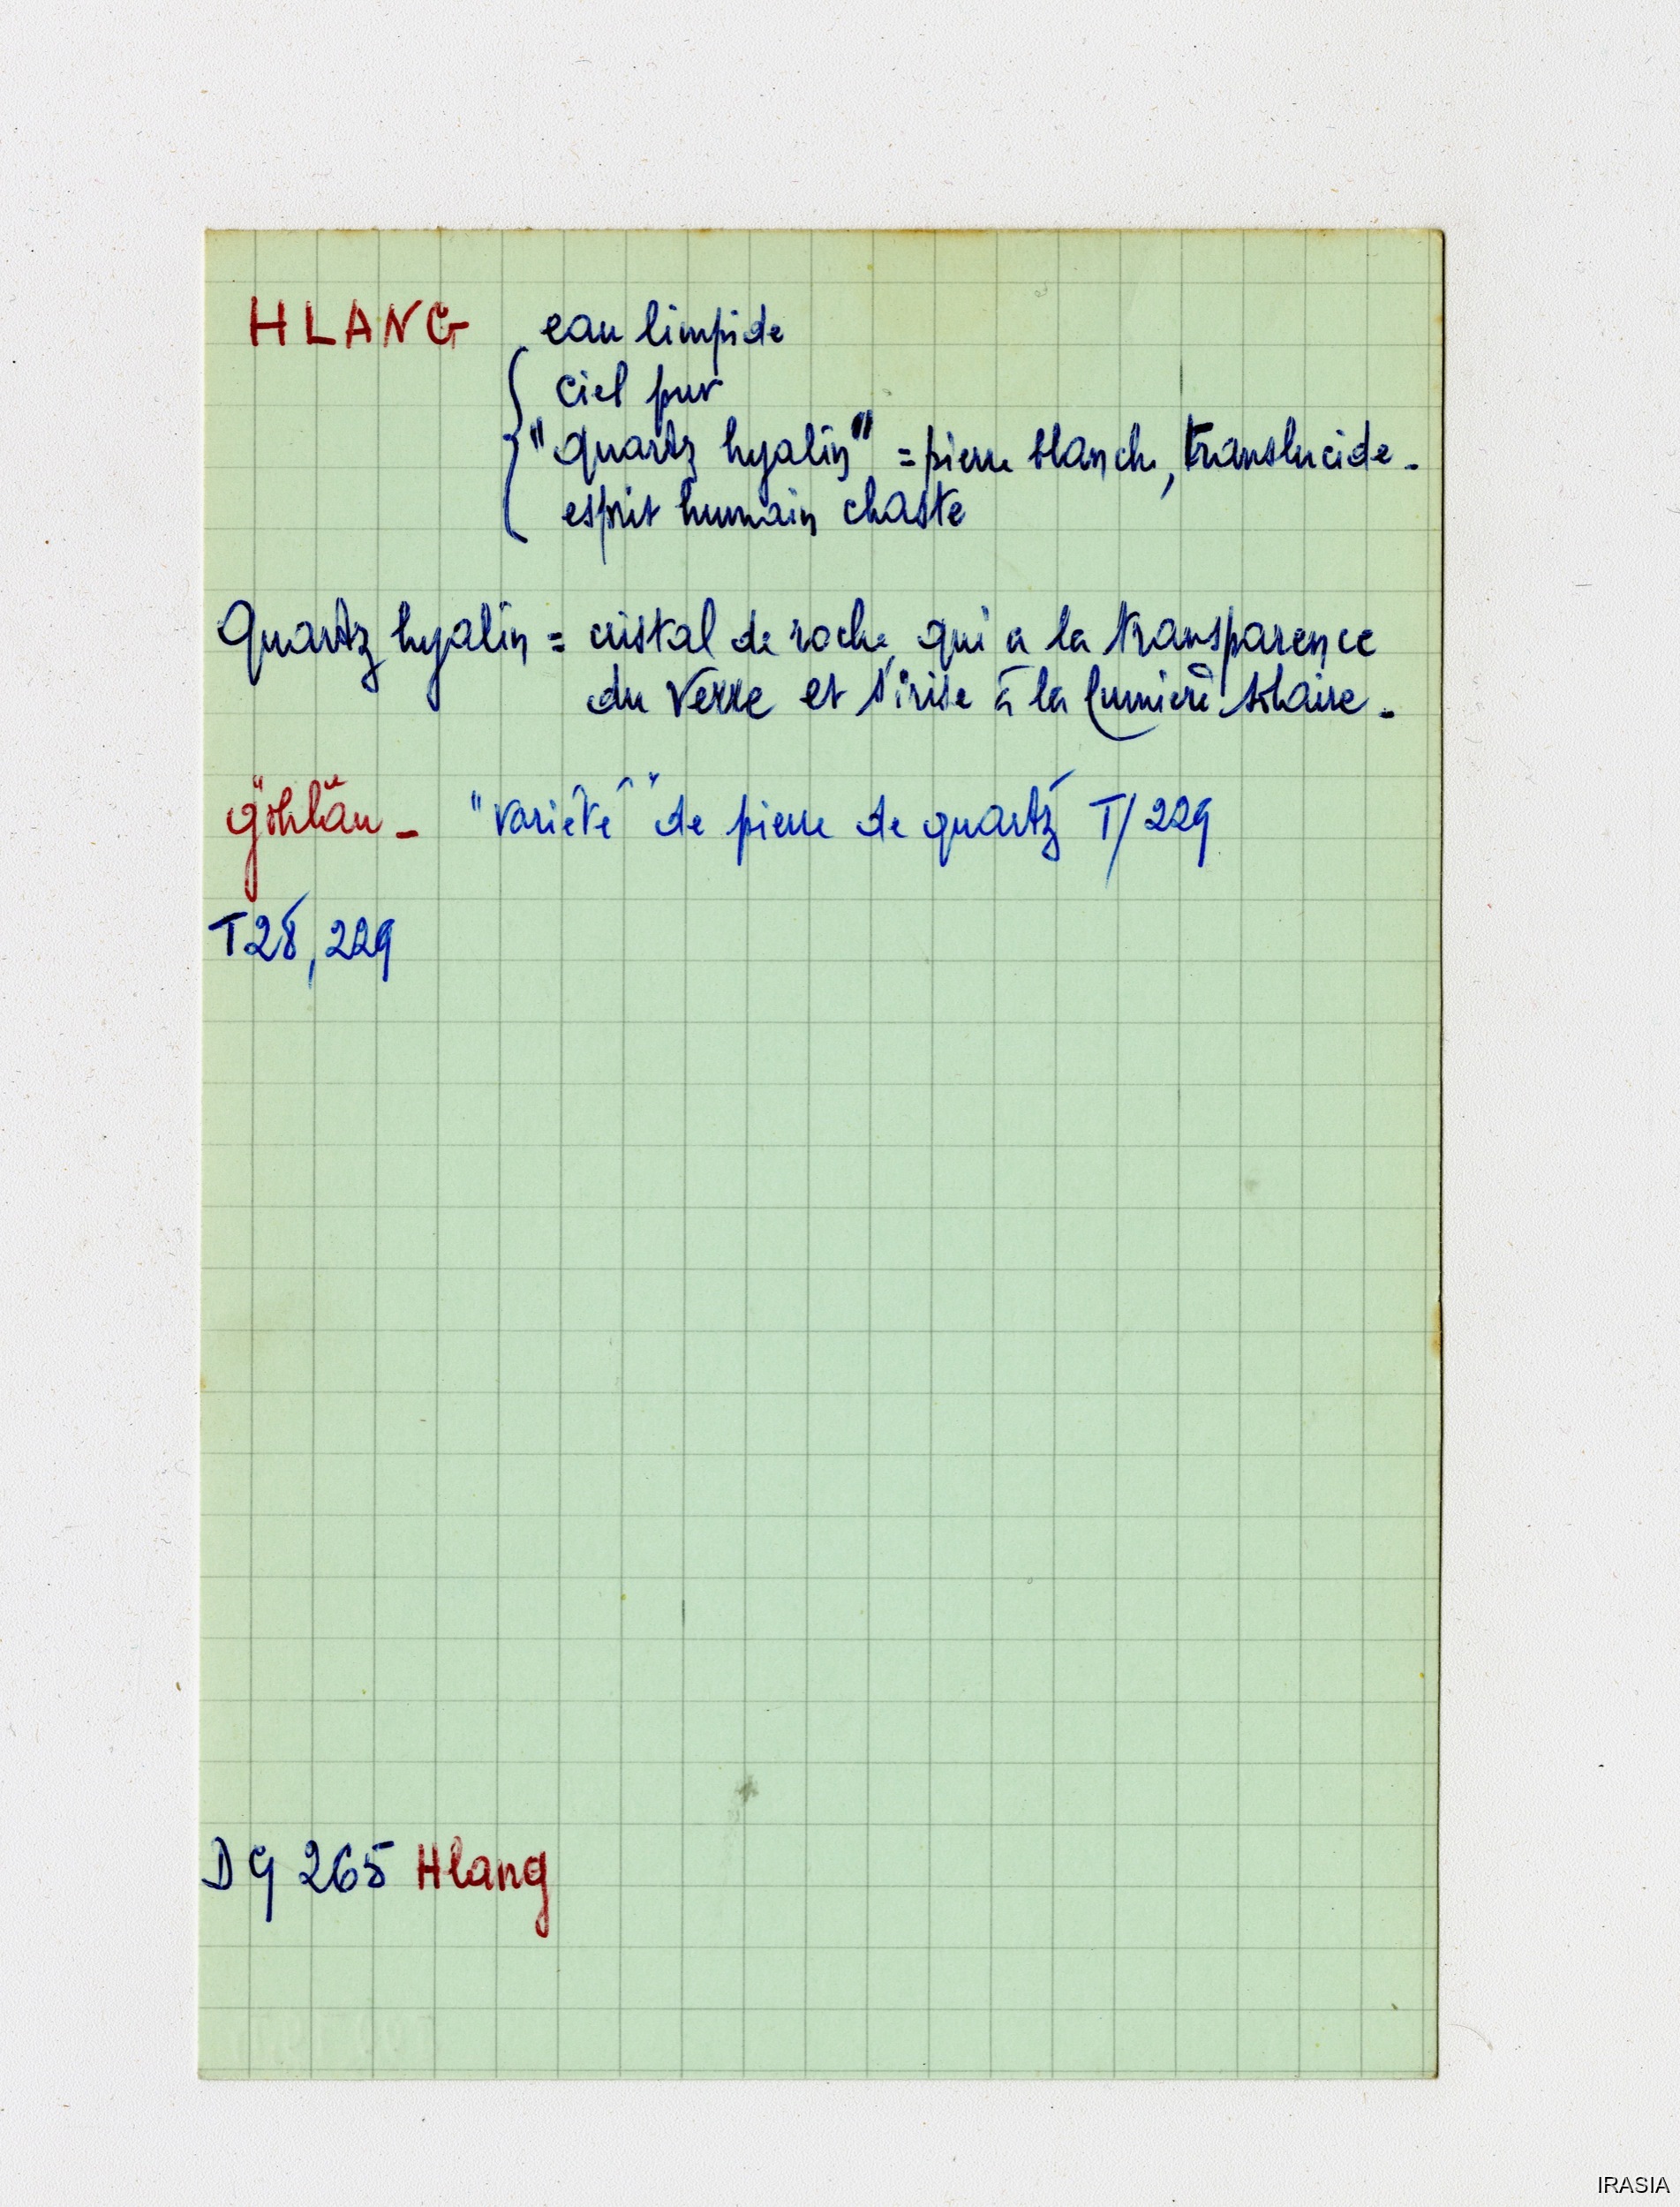 HLANG eau limpide
ciel pur
"quartz hyalin" = pierre blanche, translucide.
esprit humain chaste
Quartz hyalin = cristal de roche, qui a la transparence
du verre et s'irise à la lumière solaire.
"variété" de pierre de quartz T/229
T28, 229
DG 265 Hlang
IRASIA